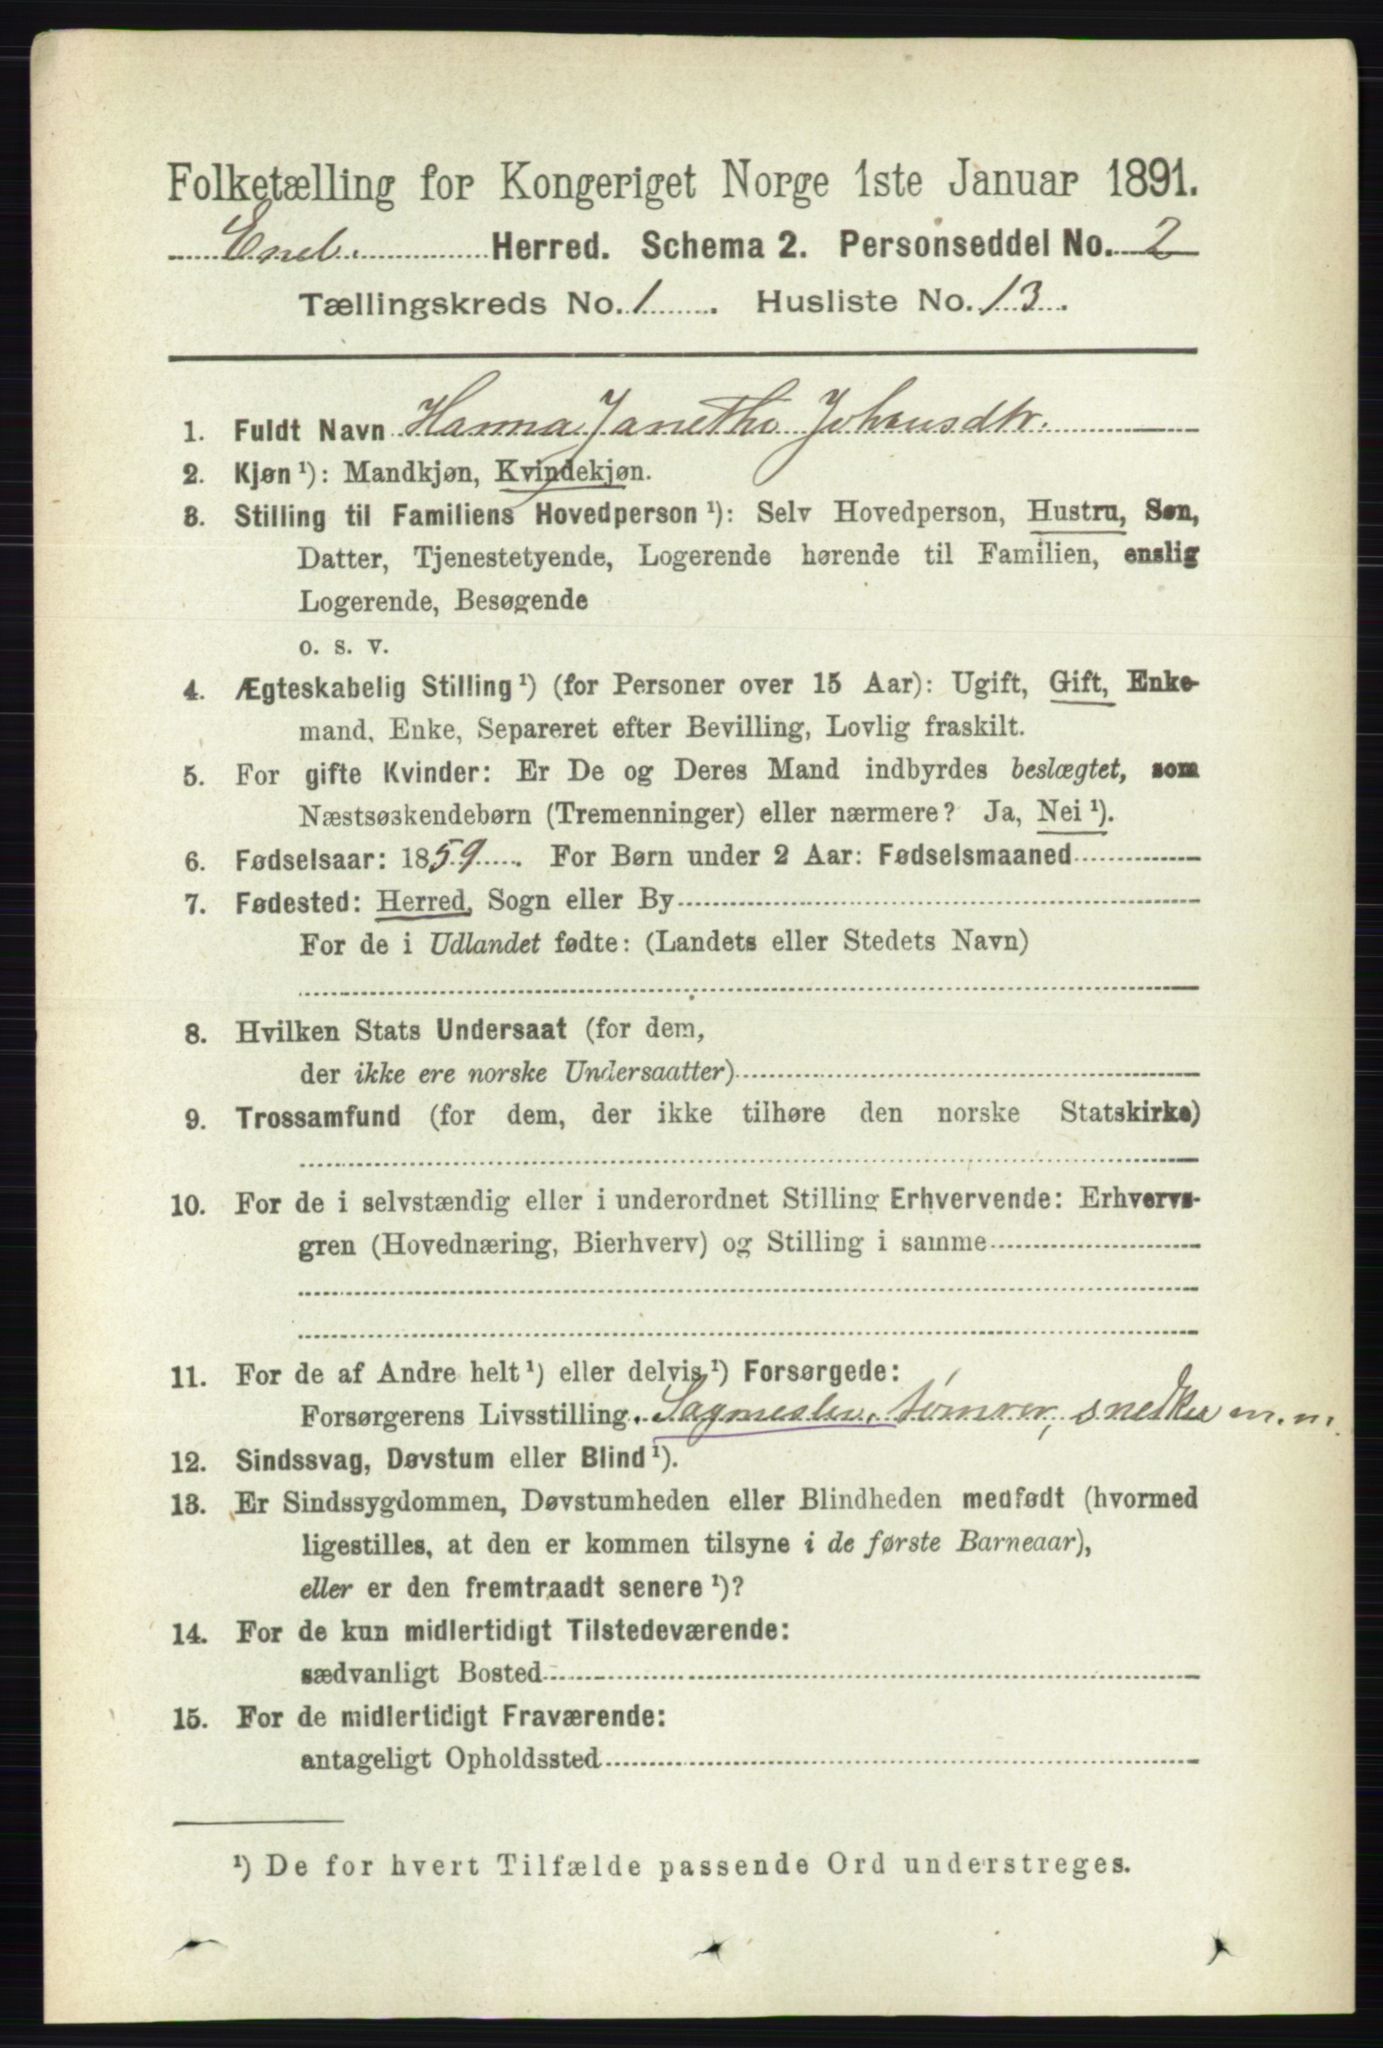 Folketælling for Kongeriget Norge 1ste Januar 1891.
Eneb. Herred. Schema 2. Personseddel No. 2
Tællingskreds No. 1. Husliste No. 13.
1. Fuldt Navn Hanna Janethe Johansdtr.
2. Kjøn ¹): Mandkjøn, Kvindekjøn.
3. Stilling til Familiens Hovedperson ¹): Selv Hovedperson, Hustru, Søn,
Datter, Tjenestetyende, Logerende hørende til Familien, enslig
Logerende, Besøgende
o. s. v.
4. Ægteskabelig Stilling ¹) (for Personer over 15 Aar): Ugift, Gift, Enke-
mand, Enke, Separeret efter Bevilling, Lovlig fraskilt.
5. For gifte Kvinder: Er De og Deres Mand indbyrdes beslægtet, som
Næstsøskendebørn (Tremenninger) eller nærmere? Ja, Nei ¹).
6. Fødselsaar: 1859. For Børn under 2 Aar: Fødselsmaaned
7. Fødested: Herred, Sogn eller By
For de i Udlandet fødte: (Landets eller Stedets Navn)
8. Hvilken Stats Undersaat (for dem,
der ikke ere norske Undersaatter)
9. Trossamfund (for dem, der ikke tilhøre den norske Statskirke)
10. For de i selvstændig eller i underordnet Stilling Erhvervende: Erhvervs-
gren (Hovednæring, Bierhverv) og Stilling i samme
11. For de af Andre helt ¹) eller delvis ¹) Forsørgede:
Forsørgerens Livsstilling. Sagmester, tømrer, snedker m. m.
12. Sindssvag, Døvstum eller Blind ¹).
13. Er Sindssygdommen, Døvstumheden eller Blindheden medfødt (hvormed
ligestilles, at den er kommen tilsyne i de første Barneaar),
eller er den fremtraadt senere ¹)?
14. For de kun midlertidigt Tilstedeværende:
sædvanligt Bosted
15. For de midlertidigt Fraværende:
antageligt Opholdssted
¹) De for hvert Tilfælde passende Ord understreges.